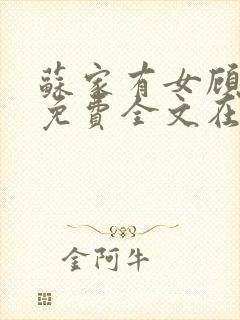 蘇家有女顾
免費全文在
金阿牛